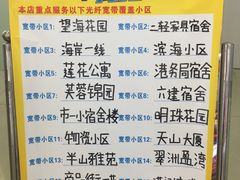 本店重点服务以下光纤宽带覆盖小区
宽带小区1: 望海花园 宽带小区2: 二轻家具宿舍
宽带小区3: 海岸一线 宽带小区4: 滨海小区
宽带小区5: 莲花公寓 宽带小区6: 港务局宿舍
宽带小区7: 芙蓉锦园 宽带小区8: 六建宿舍
宽带小区9: 市一小宿舍楼 宽带小区10: 明珠花园
宽带小区11: 物资小区 宽带小区12: 天山大厦
宽带小区13: 半山雅苑 宽带小区14: 翠洲盈湾